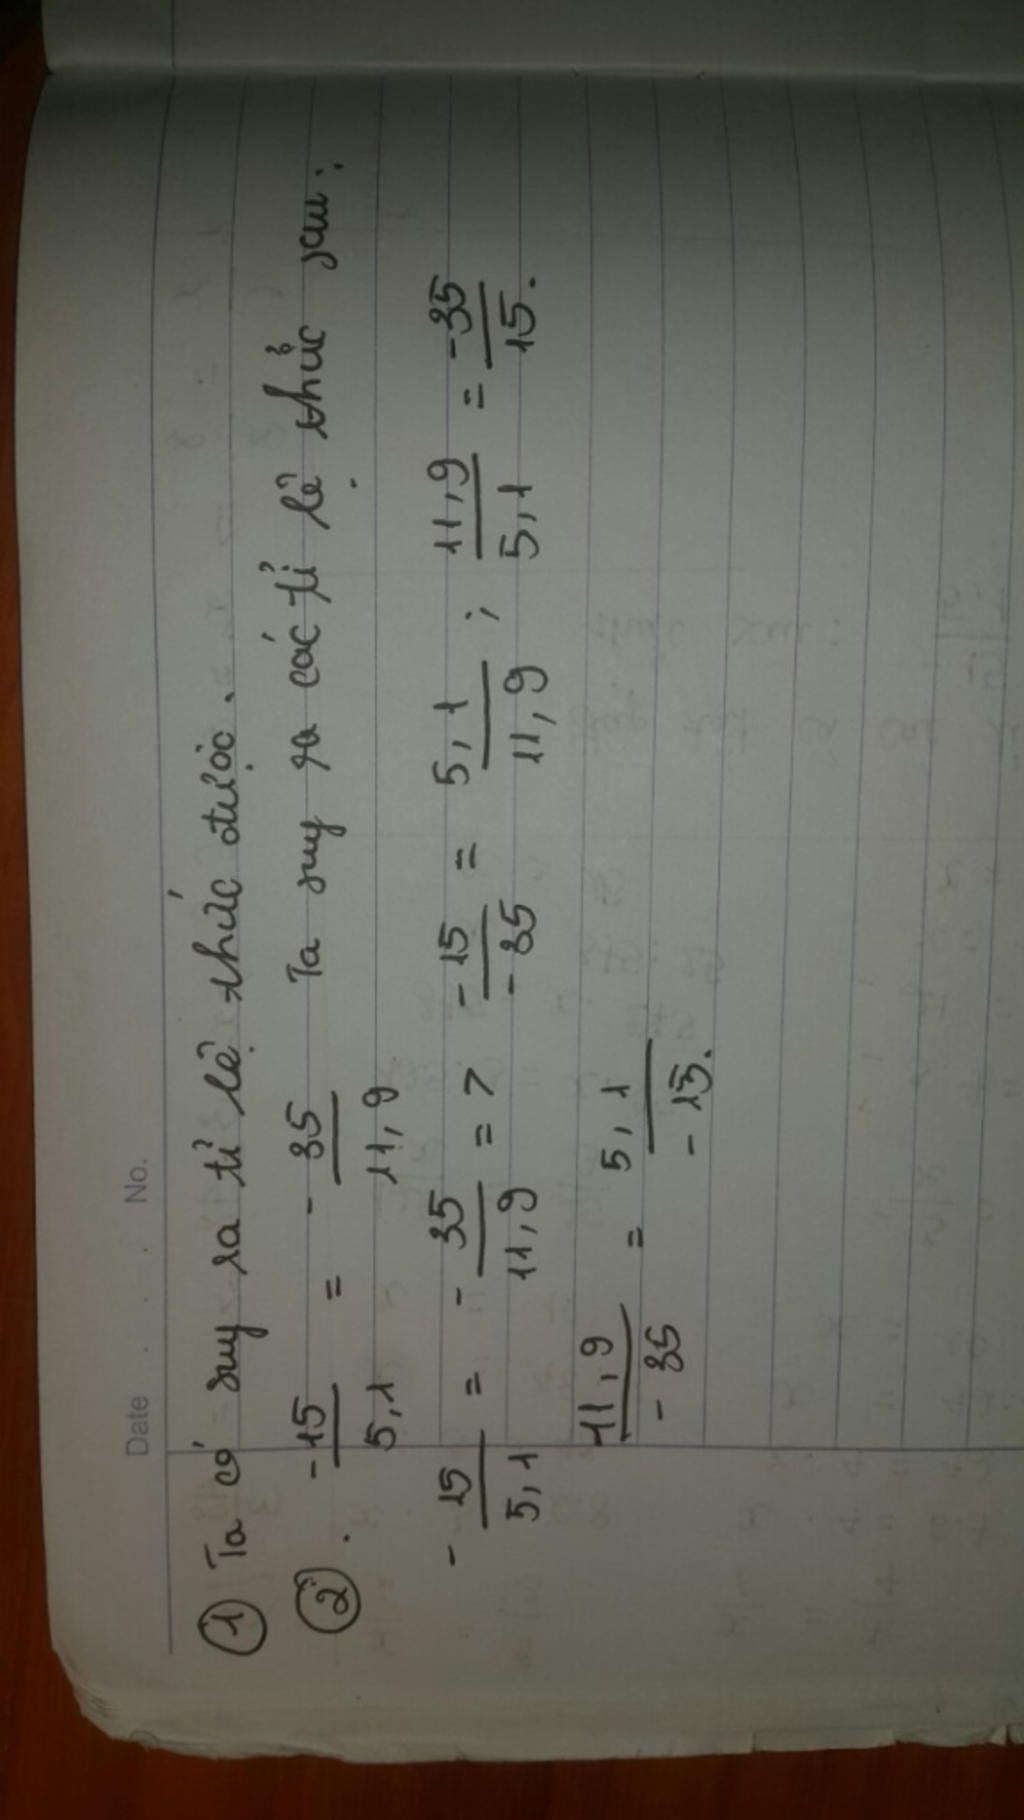 Date . . . No.
① Ta có suy ra tỉ lệ thức được.
② . -15/5,1 = -35/11,9 Ta suy ra các tỉ lệ thức sau:
-15/5,1 = -35/11,9 = 7 -15/-35 = 5,1/11,9 ; 11,9/5,1 = -35/15.
11,9/-35 = 5,1/-15.